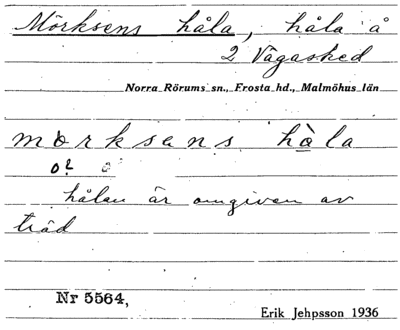 Mörksens håla, håla å
2 Vågasked
Norra Rörums sn., Frosta hd., Malmöhus län
morksens hàla
o?
hålan är omgiven av
träd
Nr 5564,
Erik Jehpsson 1936